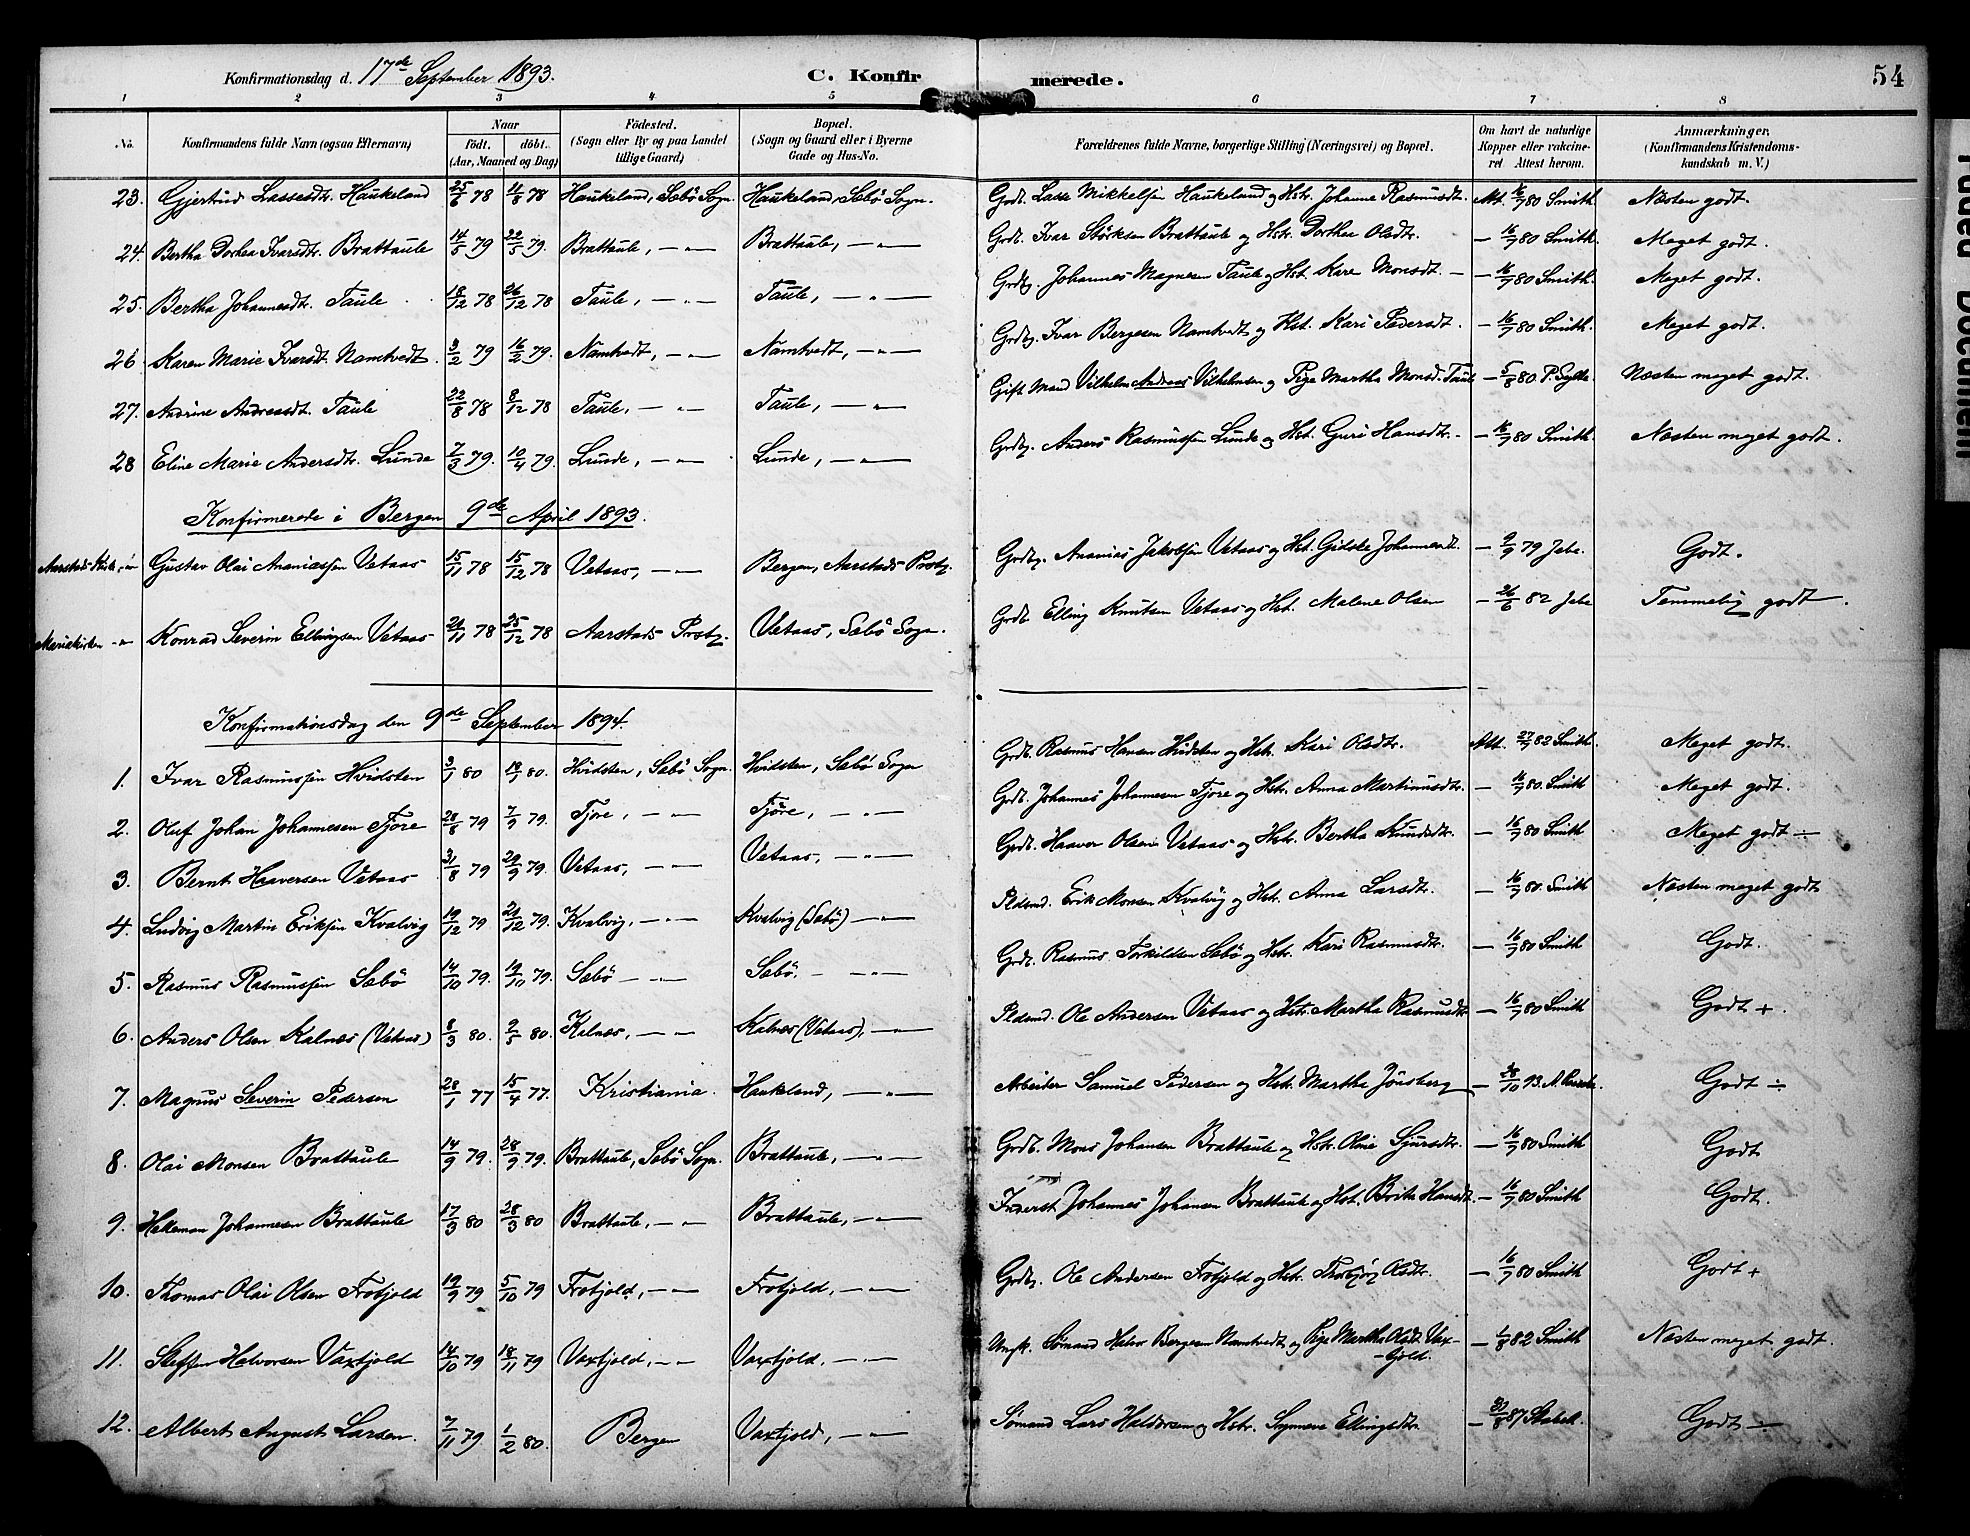 Konfirmationsdag d. 17de September 1893. C. Konfirmerede. 54
1 2 3 4 5 6 7 8
No. Konfirmandens fulde Navn (ogsaa Efternavn) Naar födt. döbt. (Aar, Maaned og Dag) Födested. (Sogn eller By og paa Landet tillige Gaard) Bopæl. (Sogn og Gaard eller i Byerne Gade og Hus-No. Forældrenes fulde Navne, borgerlige Stilling (Næringsvei) og Bopæl. Om havt de naturlige Kopper eller vaccineret Attest herom. Anmærkninger, (Konfirmandens Kristendomskundskab m. V.)
23. Gjertrud Lassesdtr. Haukeland 25/6 78 11/8 78 Haukeland, Sæbö Sogn. Haukeland, Sæbö Sogn. Grdb. Lasse Mikkelsen Haukeland og Hstr. Johanne Rasmusdt. Att. 16/7 80 Smith Næsten godt.
24. Bertha Dorthea Ivarsdtr. Brattaule 14/5 79 22/5 79. Brattaule, — „ — Brattaule, — „ — Grdb. Ivar Störksen Brattaule og Hstr. Dorthea Olsdtr. — 16/7 80 Smith. Meget godt.
25. Bertha Johannesdt. Taule 18/12 78 26/12 78 Taule, — „ — Taule, — „ — Grdbr. Johannes Magnesen Taule og Hst. Kari Monsdt. — — 16/7 80 Smith. Meget godt.
26. Karen Marie Ivarsdt. Namtvedt. 3/2 79 16/2 79. Namtvedt, — „ — Namtvedt, — „ — Grdbr. Ivar Bergesen Namtvedt og Hst. Kari Pedersdt. — 16/7 80 Smith. Meget godt.
27. Andrine Andreasdt. Taule 22/8 78 8/12 78 Taule, — „ — Taule, — „ — Gift Mand Vilhelm Andreas Vilhelmsen og Pige Martha Monsd. Taule — 5/8 80 P. Sylte. Næsten meget godt.
28 Eline Marie Andersdtr. Lunde 7/3 79. 10/4 79. Lunde, — „ — Lunde, — „ — Grdbr. Anders Rasmussen Lunde og Hst. Guri Hansdtr. — 16/7 80 Smith. Næsten meget godt.
Konfirmerede i Bergen 9de April 1893.
Gustav Olai Ananiassen Vetaas 15/11 78 15/12 78 Vetaas, — „ — Bergen, Aarstads Prstg. Grdbr. Ananias Jakobsen Vetaas og Hst. Gidske Johannesdt. — 9/9 79 Jebe. Godt.
Mariakirken — „ Konrad Severin Ellingsen Vetaas 21/11 78 25/12 78 Aarstads Prstg. Vetaas, Sæbö Sogn. Grdb. Elling Knutsen Vetaas og Hst. Malene Olsen — 26/6 82 Jebe Temmelig godt.
Konfirmationsdag den 9de September 1894.
1. Ivar Rasmussen Hvidsten 3/1 80 18/1 80. Hvidsten, Sæbö Sogn. Hvidsten, Sæbö Sogn Grdb. Rasmus Hansen Hvidsten og Hstr. Kari Olsdtr. Att. 27/7 82 Smith. Meget godt.
2. Oluf Johan Johannesen Fjöre 28/8 79 7/9 79. Fjöre, — „ — Fjöre, — „ — Grdb. Johannes Johannesen Fjöre og Hstr. Anna Martinusdtr. — 16/7 80. Smith Meget godt.
3. Bernt Haaversen Vetaas 31/8 79 29/9 79. Vetaas, — „ — Vetaas, — „ — Grdb. Haaver Olsen Vetaas og Hstr. Bertha Knudsdtr. — 16/7 80 Smith Meget godt ÷
4. Ludvig Martin Eriksen Kvalvig 19/12 79 21/12 79. Kvalvig, — „ — Kvalvig (Sæbö) — „ — Pldsmd. Erik Monsen Kvalvig og Hstr. Anna Larsdt. — 16/7 80. Smith Næsten meget godt
5. Rasmus Rasmussen Sæbö 14/10 79. 19/10 79. Sæbö — „ — Sæbö. — „ — Grdb. Rasmus Torkildsen Sæbö og Hstr. Kari Rasmusdtr. — 16/7 80 Smith Godt.
6. Anders Olsen Kalnæs (Vetaas) 8/3 80. 2/5 80. Kalnæs, — „ — Kalnæs (Vetaas), — „ — Pldsmd. Ole Andersen Vetaas og Hstr. Martha Rasmusdt — 16/7 80 Smith Godt +.
7. Magnus Severin Pedersen 28/1 77 15/4 77. Kristiania. Haukeland, — „ — Arbeider Samuel Pedersen og Hstr. Martha Jönsberg — 28/10 93. Godt ÷
8. Olai Monsen Brattaule 14/9 79. 28/9 79. Brattaule, Sæbö Sogn. Brattaule, — „ — Grdb. Mons Johansen Brattaule og Hstr. Oline Sjursdtr. — 16/7 80 Smith Godt
9. Halleman Johannesen Brattaule 17/3 80 28/3 80 Brattaule, — „ — Brattaule, — „ — Inderst Johannes Johansen Brattaule og Hst. Brite Hansdt. — 16/7 80 Smith Godt.
10. Thomas Olai Olsen Frotjold 19/9 79 5/10 79 Frotjold, — „ — Frotjold, — „ — Grdbr. Ole Andersen Frotjold og Hstr. Thorbjörg Olsdtr. — 16/7 80 Smith Godt +
11. Steffen Halvorsen Vaxtjold 14/10 79 18/11 79 Vaxtjold, — „ — Vaxtjold, — „ — Ungk. Sömand Halvor Bergesen Namtvedt og Pige Martha Olsdt. Vaxtjold. — 1/8 82 Smith Næsten meget godt.
12. Albert August Larsen. 7/11 79 1/2 80. Bergen Vaxtjold, — „ — Sömand Lars Haldorsen og Hstr. Synneve Ellingsdtr. — 30/8 87 Godt ÷